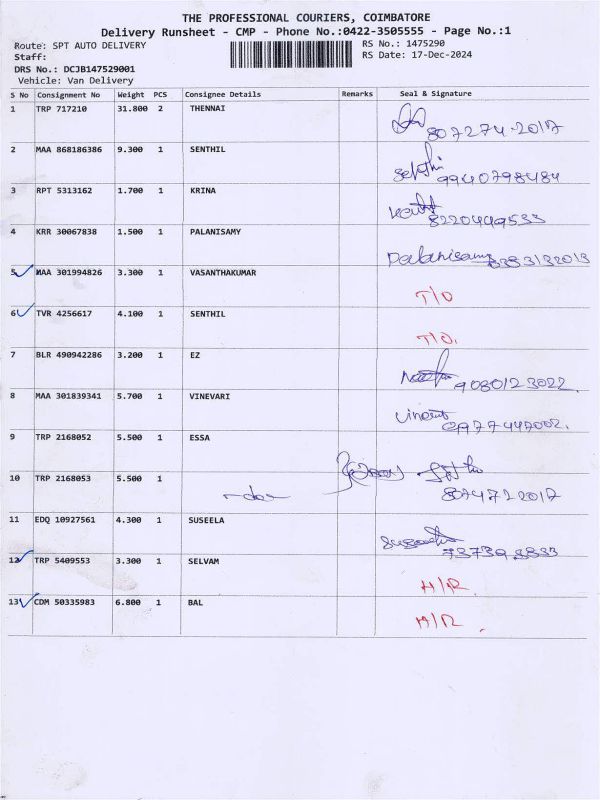 THE PROFESSIONAL COURIERS, COIMBATORE
Delivery Runsheet - CMP - Phone No.:0422-3505555 - Page No.:1
Route: SPT AUTO DELIVERY RS No.: 1475290
Staff: RS Date: 17-Dec-2024
DRS No.: DCJB147529001
Vehicle: Van Delivery
S No Consignment No Weight PCS Consignee Details Remarks Seal & Signature
1 TRP 717210 31.800 2 THENNAI
807274-2017
2 MAA 868186386 9.300 1 SENTHIL
9940798484
3 RPT 5313162 1.700 1 KRINA
8220449533
4 KRR 30067838 1.500 1 PALANISAMY
Palanisamy
5 MAA 301994826 3.300 1 VASANTHAKUMAR
T/O
6 TVR 4256617 4.100 1 SENTHIL
T/O.
7 BLR 490942286 3.200 1 EZ
9080123022
8 MAA 301839341 5.700 1 VINEVARI
Vincent
9 TRP 2168052 5.500 1 ESSA
10 TRP 2168053 5.500 1
-do-
11 EDQ 10927561 4.300 1 SUSEELA
12 TRP 5409553 3.300 1 SELVAM
H/R
13 CDM 50335983 6.800 1 BAL
H/R